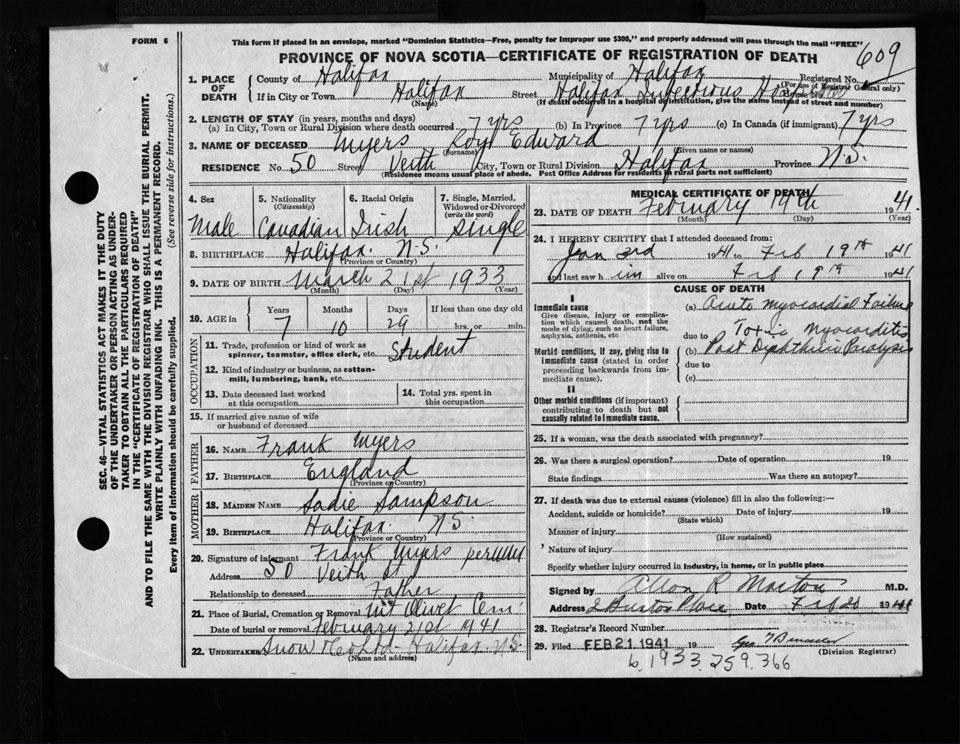 FORM 6
This form if placed in an envelope, marked "Dominion Statistics—Free, penalty for improper use $300," and properly addressed will pass through the mail "FREE"
PROVINCE OF NOVA SCOTIA—CERTIFICATE OF REGISTRATION OF DEATH
609
1. PLACE OF DEATH
County of Halifax Municipality of Halifax Registered No.
(For use of Registrar General only)
If in City or Town Halifax Street Halifax Infectious
(Name) (If death occurred in a hospital or institution, give the name instead of street and number)
2. LENGTH OF STAY (in years, months and days)
(a) In City, Town or Rural Division where death occurred 7 yrs (b) In Province 7 yrs (c) In Canada (if immigrant) 7 yrs
3. NAME OF DECEASED Myers Roy Edward
(Surname) (Given name or names)
RESIDENCE No. 50 Street Veith City, Town or Rural Division Halifax Province N.S.
(Residence means usual place of abode. Post Office Address for residents in rural parts not sufficient)
4. Sex
Male
5. Nationality (Citizenship)
Canadian
6. Racial Origin
Irish
7. Single, Married, Widowed or Divorced (write the word)
Single
8. BIRTHPLACE Halifax N.S.
(Province or Country)
9. DATE OF BIRTH March 21st 1933
(Month) (Day) (Year)
10. AGE in Years Months Days If less than one day old
7 10 29 hrs. or min.
OCCUPATION
11. Trade, profession or kind of work as spinner, teamster, office clerk, etc. Student
12. Kind of industry or business, as cotton-mill, lumbering, bank, etc.
13. Date deceased last worked at this occupation
14. Total yrs. spent in this occupation
15. If married give name of wife or husband of deceased
FATHER
16. NAME Frank Myers
17. BIRTHPLACE England
(Province or Country)
MOTHER
18. MAIDEN NAME Sadie Sampson
19. BIRTHPLACE Halifax N.S.
(Province or Country)
20. Signature of informant Frank Myers
Address 50 Veith St
Relationship to deceased Father
21. Place of Burial, Cremation or Removal Mt Olivet Cem.
Date of burial or removal February 21st 1941
22. UNDERTAKER Snow & Co Ltd. Halifax. N.S.
(Name and address)
MEDICAL CERTIFICATE OF DEATH
23. DATE OF DEATH February 19th 1941
(Month) (Day) (Year)
24. I HEREBY CERTIFY that I attended deceased from:
Jan 3rd 1941 to Feb 19th 1941
and last saw him alive on Feb 19th 1941
CAUSE OF DEATH
I
Immediate cause
Give disease, injury or complication which caused death, not the mode of dying, such as heart failure, asphyxia, asthenia, etc.
(a) Acute Myocardial Failure
due to Toxic Myocarditis
Morbid conditions, if any, giving rise to immediate cause (stated in order proceeding backwards from immediate cause).
(b) Post Diphtheric Paralysis
due to
(c)
II
Other morbid conditions (if important) contributing to death but not causally related to immediate cause.
25. If a woman, was the death associated with pregnancy?
26. Was there a surgical operation? Date of operation 19
State findings Was there an autopsy?
27. If death was due to external causes (violence) fill in also the following:—
Accident, suicide or homicide? Date of injury 19
(State which)
Manner of injury
(How sustained)
Nature of injury
Specify whether injury occurred in Industry, in home, or in public place
Signed by Allan R Morton M.D.
Address Place Date Feb 20 1941
28. Registrar's Record Number
29. Filed FEB 21 1941 19
(Division Registrar)
b. 1933.259.366
SEC. 46—VITAL STATISTICS ACT MAKES IT THE DUTY
OF THE UNDERTAKER OR PERSON ACTING AS UNDER-
TAKER TO OBTAIN ALL THE PARTICULARS REQUIRED
IN THE "CERTIFICATE OF REGISTRATION OF DEATH"
AND TO FILE THE SAME WITH THE DIVISION REGISTRAR WHO SHALL ISSUE THE BURIAL PERMIT.
WRITE PLAINLY WITH UNFADING INK. THIS IS A PERMANENT RECORD.
Every item of information should be carefully supplied. (See reverse side for instructions.)